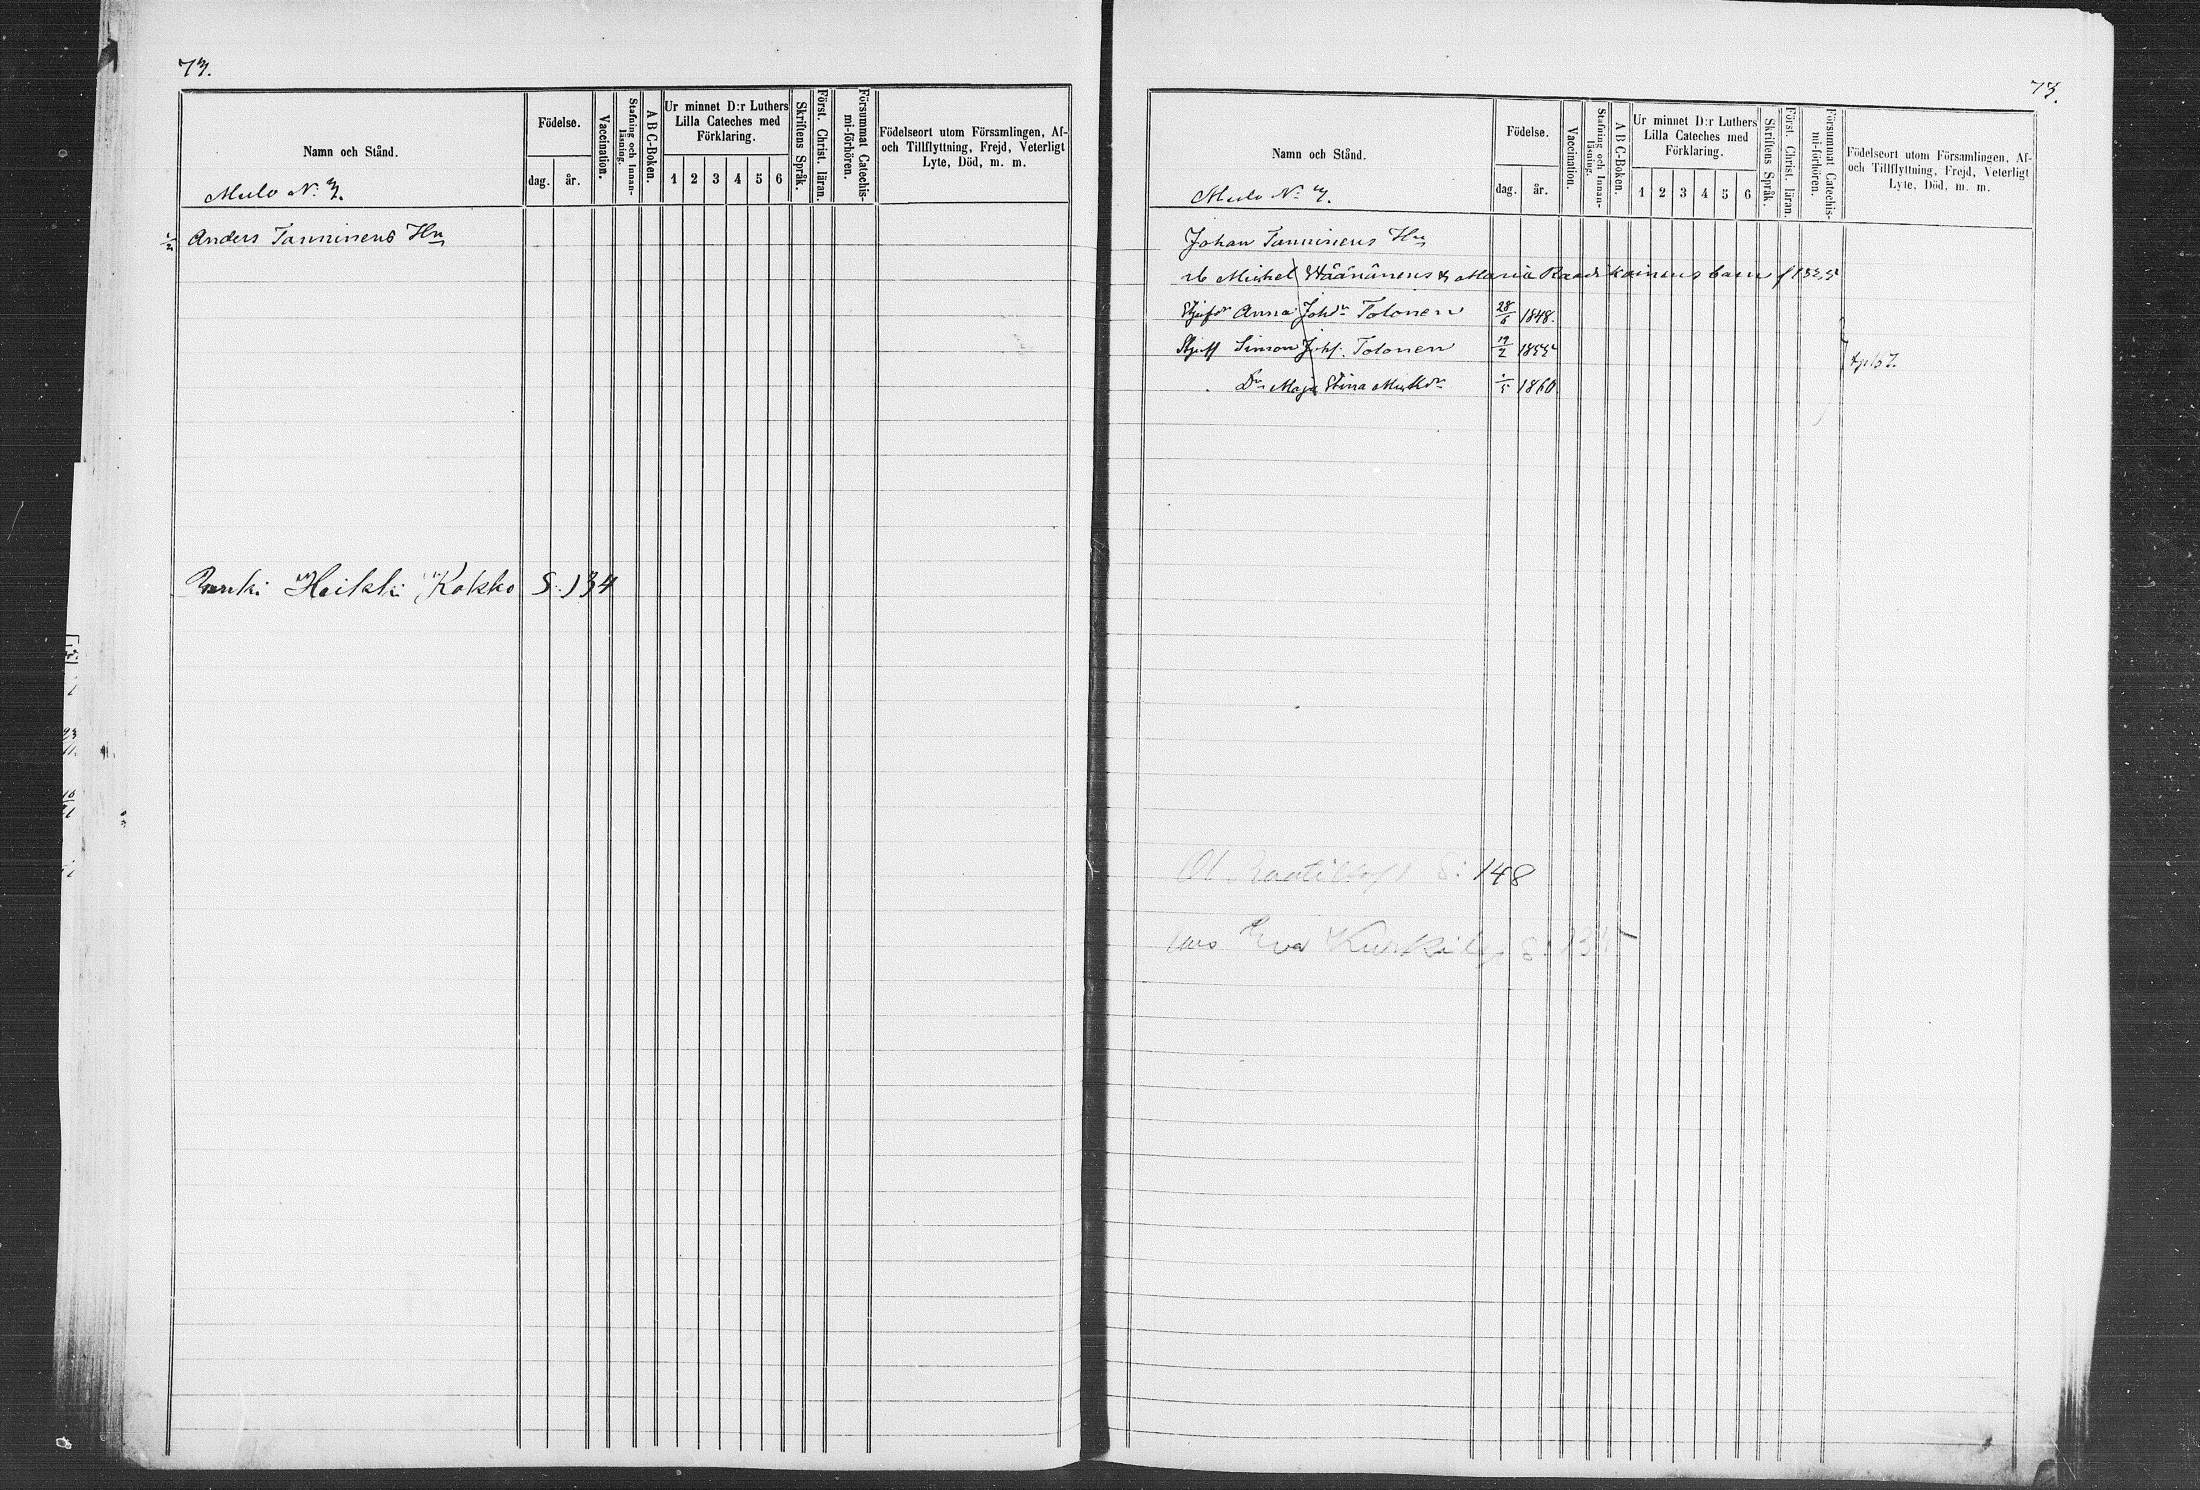 73.
Namn och Stånd.
Födelse.
dag. år.
Vaccination.
Stafning och Innan-läsning.
A B C-Boken.
Ur minnet D:r Luthers
Lilla Cateches med
Förklaring.
1 2 3 4 5 6
Skriftens Språk.
Först. Christ. läran.
Försummat Catechis-
mi-förhören.
Födelseort utom Församlingen, Af-
och Tillflyttning, Frejd, Veterligt
Lyte, Död, m. m.
Mulo N:
Anders Tanninens Hn
Heikki Kokko S. 134
73.
Namn och Stånd.
Födelse.
dag. år.
Vaccination.
Stafning och Innan-
läsning.
A B C-Boken.
Ur minnet D:r Luthers
Lilla Cateches med
Förklaring.
1 2 3 4 5 6
Skriftens Språk.
Först. Christ. läran.
Försummat Catechis-
mi-förhören.
Födelseort utom Församlingen, Af-
och Tillflyttning, Frejd, Veterligt
Lyte, Död, m. m.
Mulo N:
Johan Tanninens Hn
Michel Wäänänens & Maria barn
Anna Johdr Tolonen 28/6 1848.
Simon Johs. Tolonen 1855
Dr Maja Stina Mickdr 1/5 1860.
S: 148
Eva S: